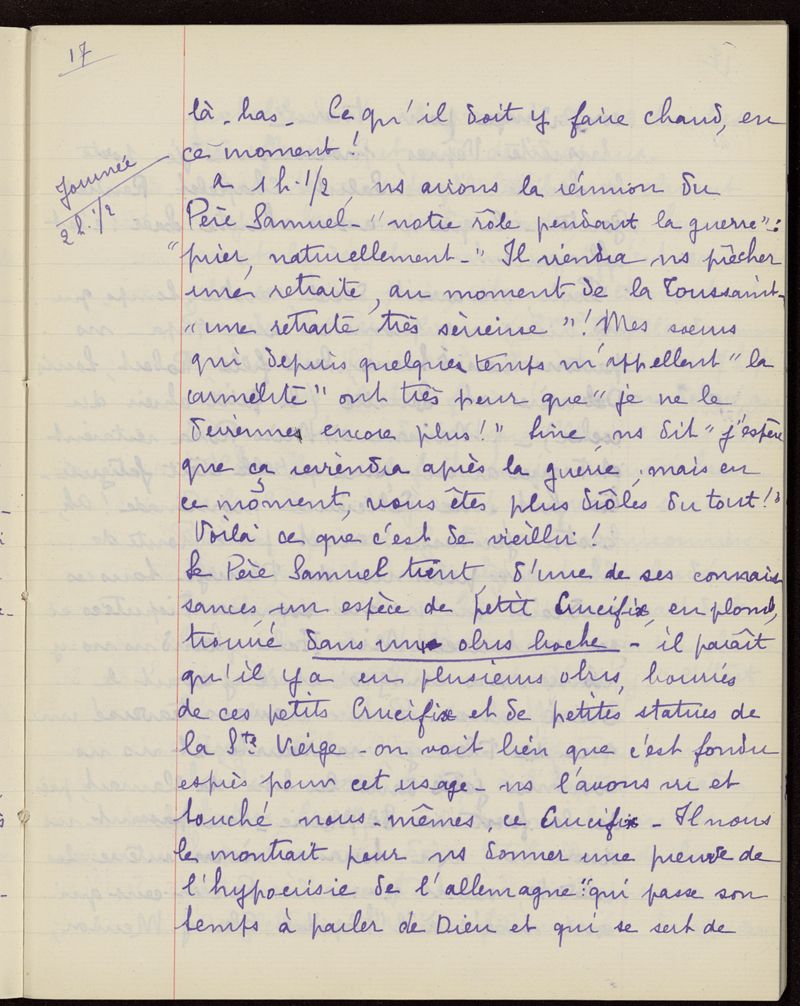 17
là-bas - Ce qu'il doit y faire chaud, en
ce moment !
Journée
2 h. 1/2
a 1 h. 1/2, ns avons la réunion du
Père Samuel - "notre rôle pendant la guerre" :
"prier, naturellement -" Il viendra ns prêcher
une retraite, au moment de la Toussaint -
"une retraite très sérieuse" ! Mes soeurs
qui depuis quelques temps m'appellent "la
carmélite" ont très peur que "je ne le
devienne encore plus !" Line, ns dit "j'espère
que ça reviendra après la guerre, mais en
ce moment, vous êtes plus drôles du tout !"
Voilà ce que c'est de vieillir !
Le Père Samuel tient d'une de ses connais
sances, un espèce de petit Crucifix, en plomb,
trouvé dans un obus boche - il paraît
qu'il y a eu plusieurs obus, bourrés
de ces petits Crucifix et de petites statues de
la Ste Vierge - on voit bien que c'est fondu
esprès pour cet usage - ns l'avons vu et
touché nous-mêmes, ce Crucifix - Il nous
le montrait pour ns donner une preuve de
l'hypocrisie de l'allemagne : "qui passe son
temps à parler de Dieu et qui se sert de